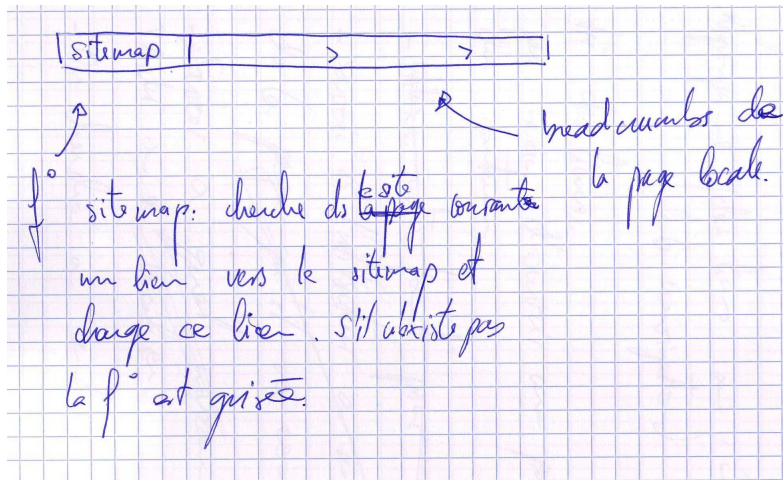 sitemap > >
breadcrumbs de
la page locale.
f° sitemap: cherche ds le site courant
un lien vers le sitemap et
charge ce lien. S'il n'existe pas
la f° est grisée.